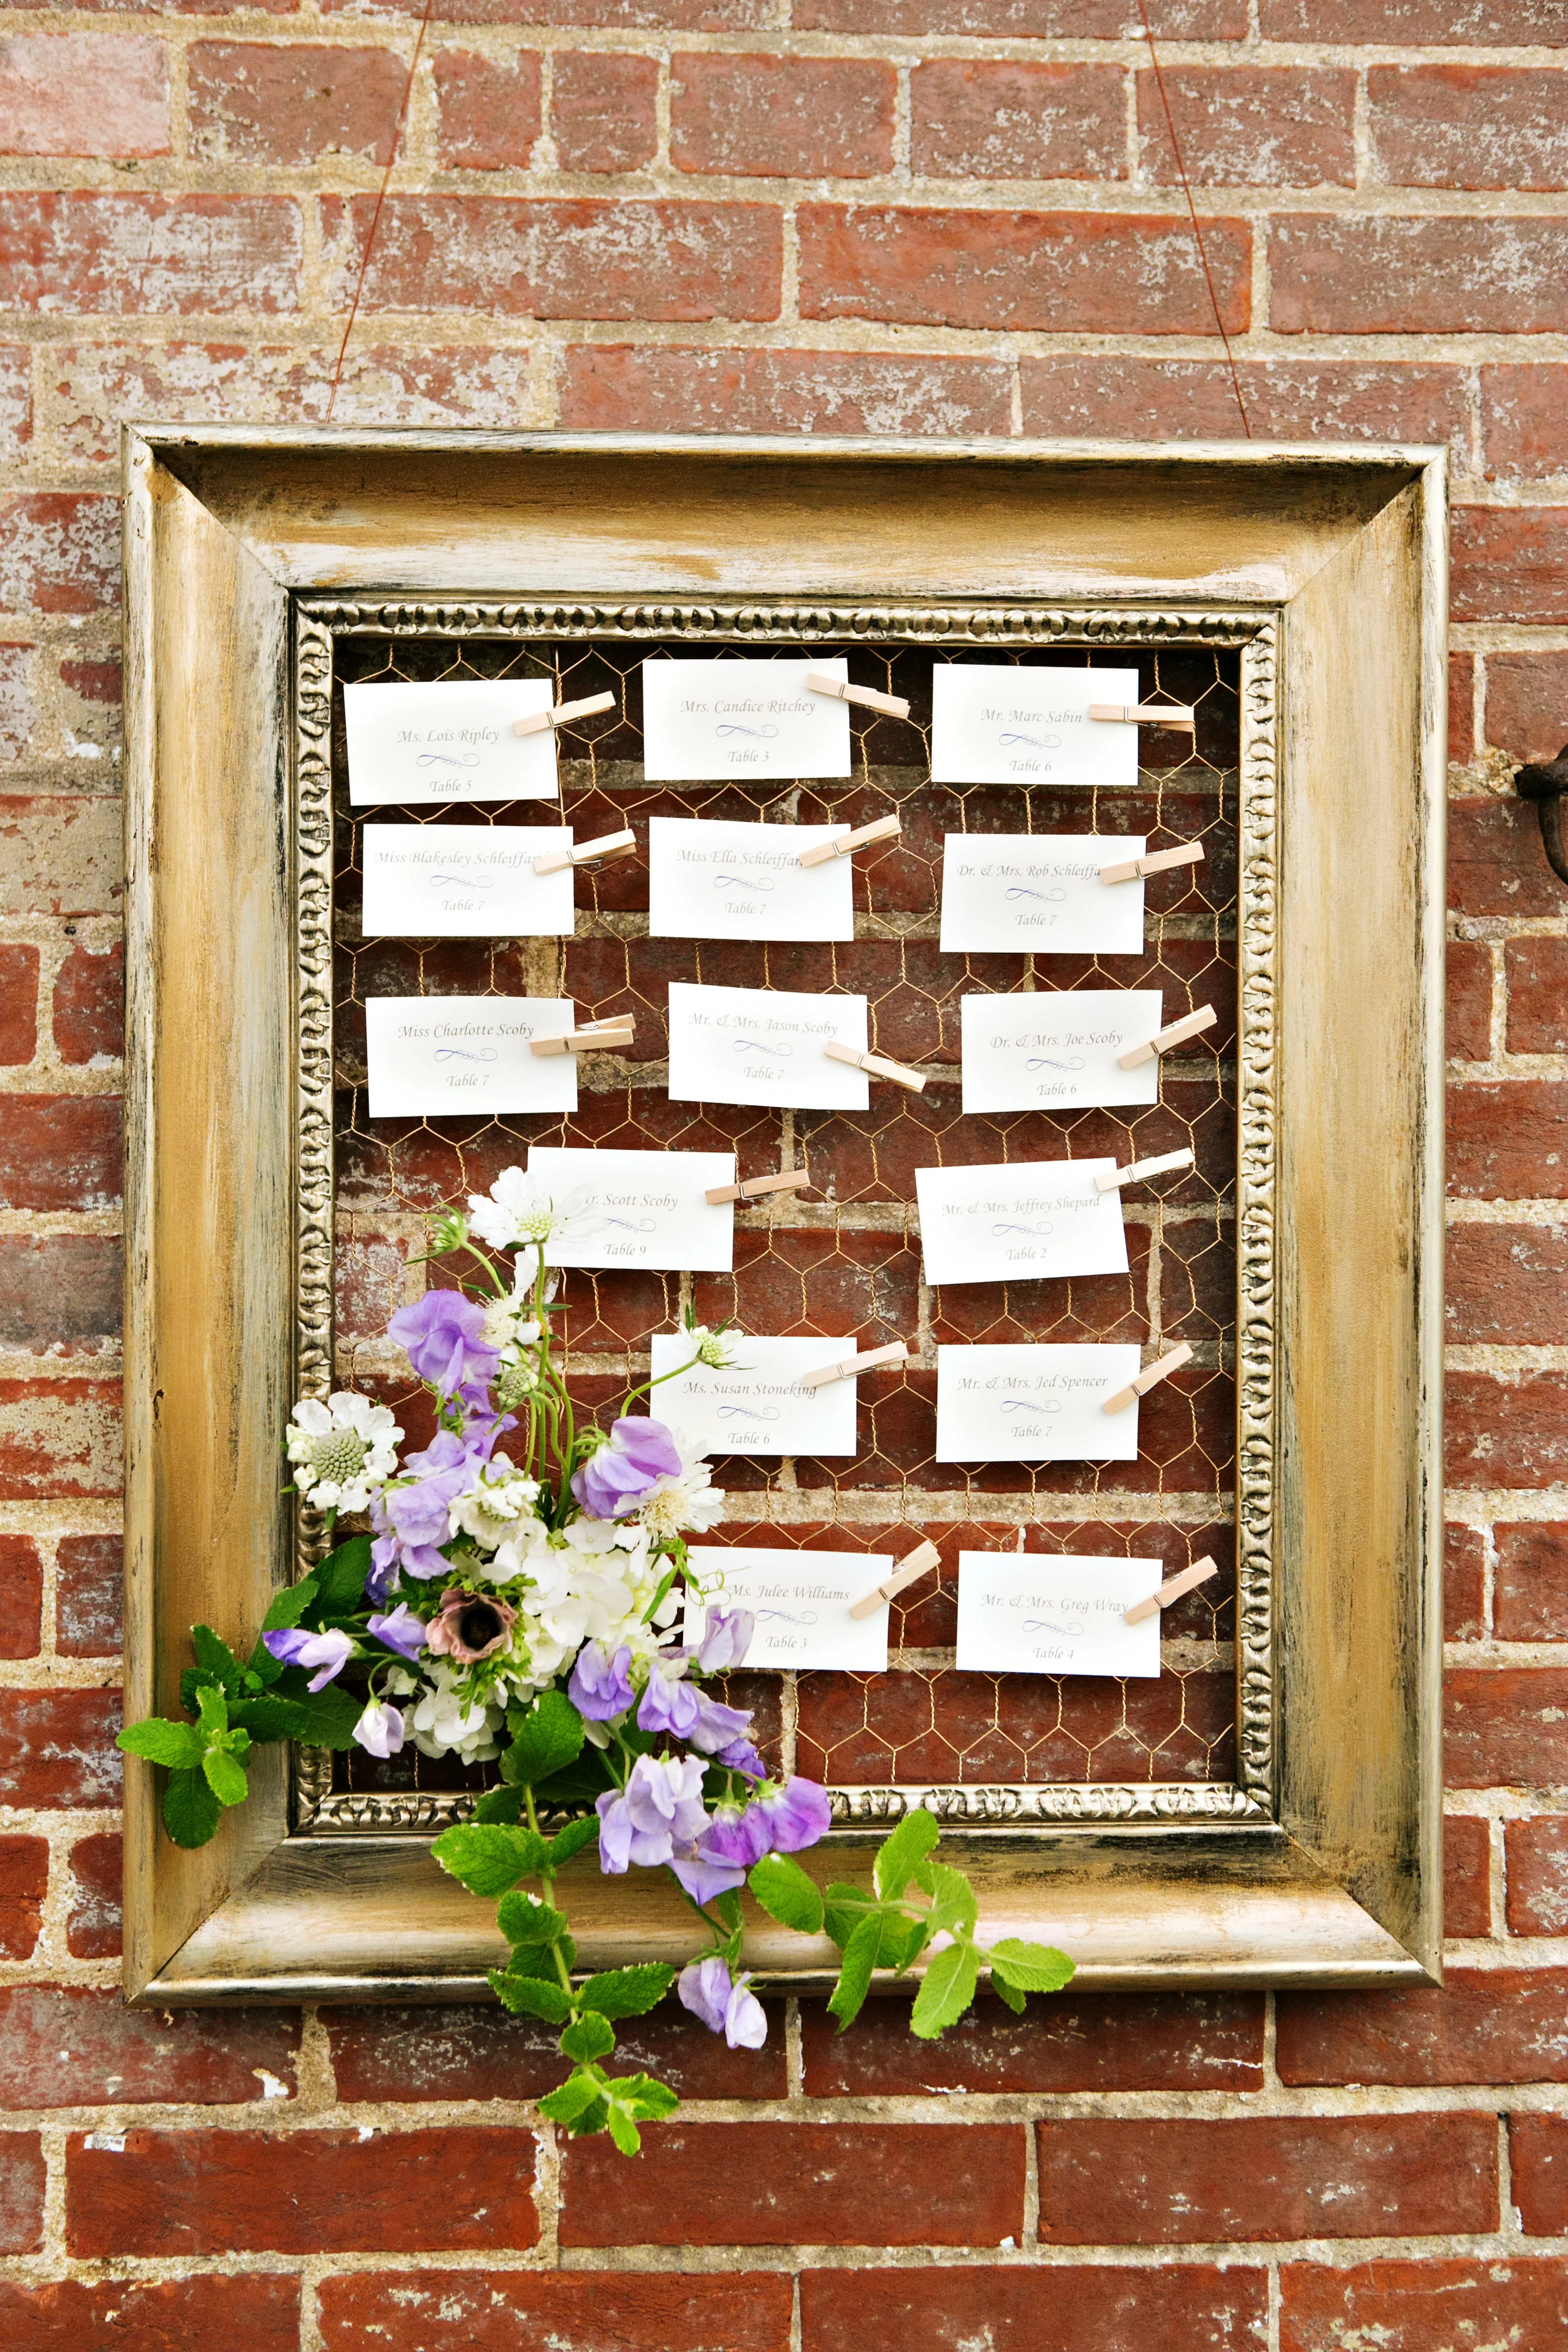 Ms. Lois Ripley
Table 5
Mrs. Candice Ritchey
Table 3
Mr. Marc Sabin
Table 6
Miss Blakesley
Table 7
Miss Ella
Table 7
Dr. & Mrs. Rob
Table 7
Miss Charlotte Scoby
Table 7
Mr. & Mrs. Jason Scoby
Table 7
Dr. & Mrs. Joe Scoby
Table 6
Scott Scoby
Table 9
Mr. & Mrs. Jeffrey Shepard
Table 2
Ms. Susan Stoneking
Table 6
Mr. & Mrs. Jed Spencer
Table 7
Ms. Julee Williams
Table 3
Mr. & Mrs. Greg Wray
Table 4